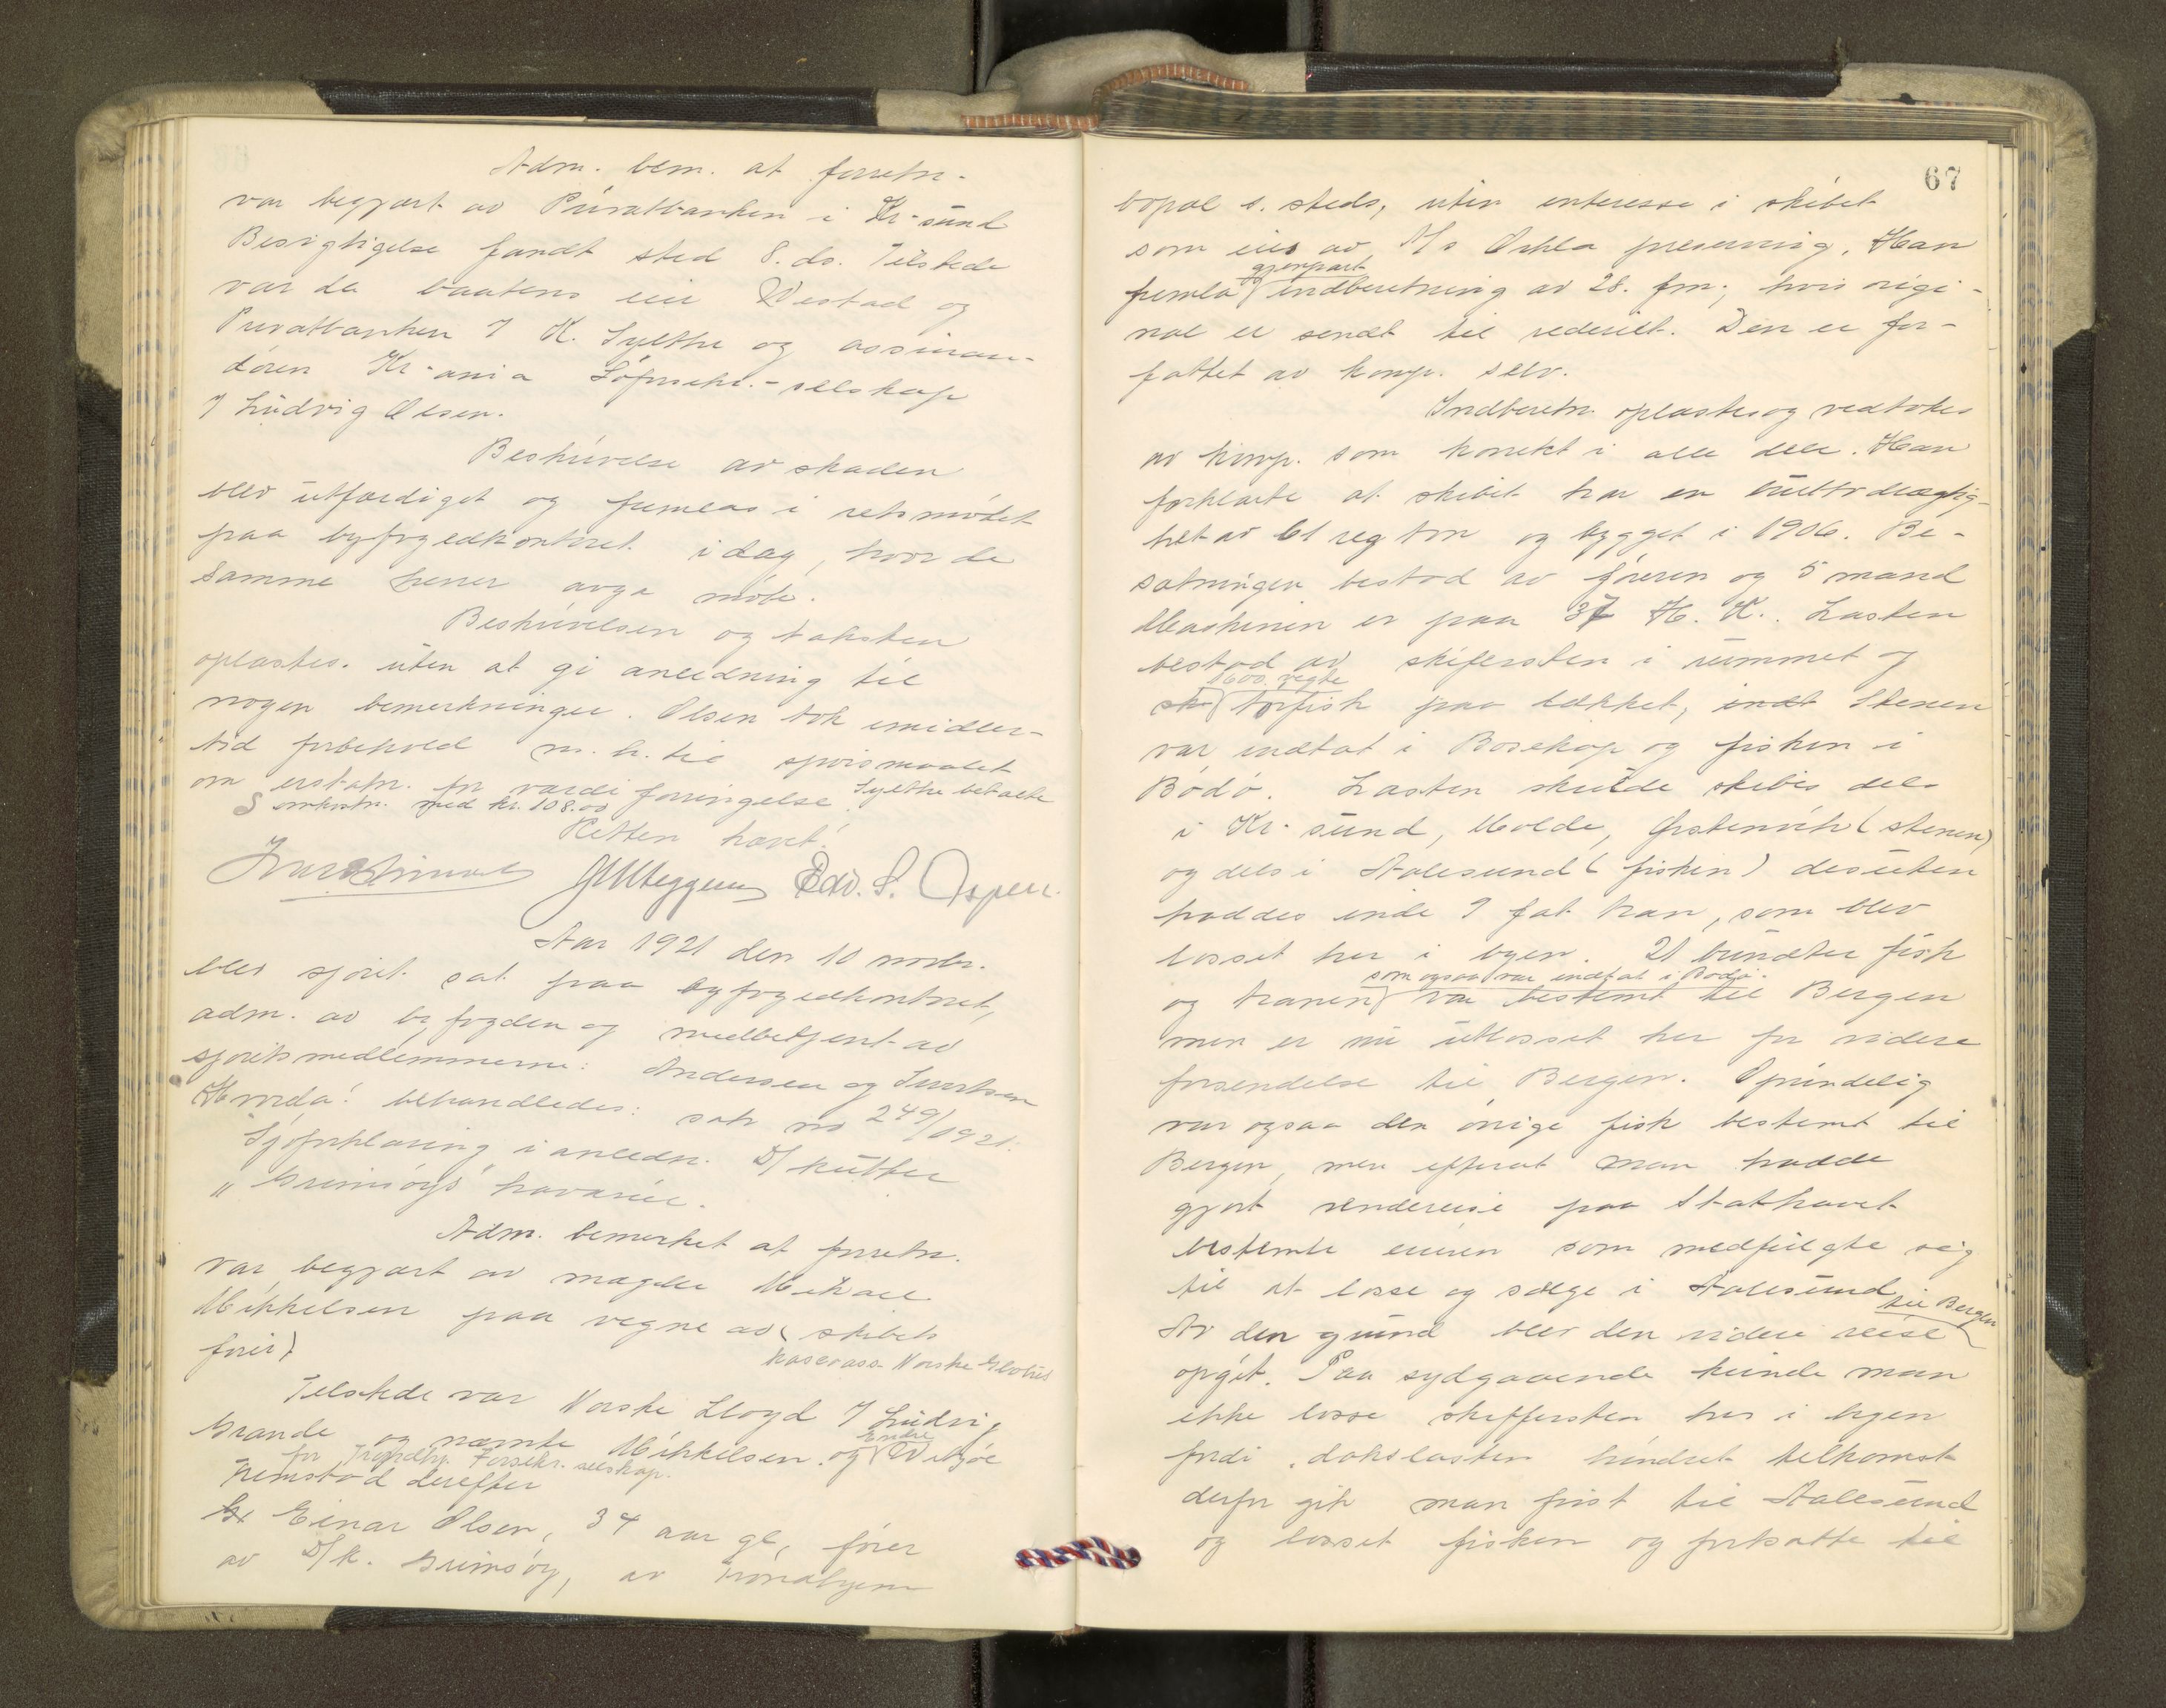 Adm. bem. at forretn.
var begjært av Privatbanken i Kr-sund
Besigtigelse fandt sted 8. ds. Tilstede
var da baatens eier Vestad og
Privatbanken v K. Sylthe og assuran-
døren Kr-ania Søforsikr.-selskap
v Ludvig Olsen.
Beskrivelse av skaden
blev utfærdiget og fremlas i retsmøtet
paa byfogedkontoret idag, hvor de
samme herrer avga møte.
Beskrivelsen og taksten
oplæstes. uten at gi anledning til
nogen bemerkninger. Olsen tok imidler-
tid forbehold m. h. til spørsmaalet
om erstatn. for værdiforringelse. Sylthe betalte
omkostn. med kr. 108.00
Retten hævet!
Edv. S. Aspen.
Aar 1921 den 10 novbr.
blev sjøret sat paa byfogedkontoret,
adm. av byfogden og medbetjent av
sjøretsmedlemmerne: Andersen og Ivertsen
Hvorda! behandledes: sak no 249/1921:
Sjøforklaring i anledn. D/ kutter
„Grimsøys" havarie.
Adm. bemerket at forretn.
var begjært av mægler Mikael
Mikkelsen paa vegne av skibets
fører)
kaskoass. Norske Globus
Tilstede var Norske Lloyd v Ludvig
Grande og nævnte Mikkelsen. og Endre Vebjøe
for Trondhj. Forsikr. selskap.
Fremstod derefter
Einar Olsen, 34 aar gl, fører
av D/K. Grimsøy, av Trondhjem
67
bopæl s. steds, uten interesse i skibet
som eies av A/s Orkla preserving. Han
gjenpart
fremla indberetning av 28. fm; hvis origi-
nal er sendt til rederiet. Den er for-
fattet av komp. selv.
Indberetn. oplæstes og vedtokes
av komp. som korrekt i alle dele. Han
forklarte at skibet har en bruttodrægtig-
het av 61 reg ton og bygget i 1906. Be-
sætningen bestod av føreren og 5 mand
Maskinen er paa 37 H. K.. Lasten
bestod av skifersten i rummet og
1600. vegte
tørfisk paa dækket, indt Stenen
var indtat i Bosekop og fisken i
Bodø. Lasten skulde skibes dels
i Kr-sund, Molde, Ørstenvik (stenen)
og dels i Aalesund (fisken) desuten
haddes inde 7 fat tran, som blev
losset her i byen. 21 bundter fisk
som ogsaa var indtat i Bodø.
og tranen var bestemt til Bergen
men er nu utlosset her for videre
forsendelse til Bergen. Oprindelig
var ogsaa den øvrige fisk bestemt til
Bergen, men efterat man hadde
gjort vendereise paa Stathavet
bestemte eieren som medfulgte sig
til at losse og sælge i Aalesund
til Bergen
Av den grund blev den videre reise
opgit. Paa sydgaaende kunde man
ikke losse skiffersten her i byen
fordi dækslasten hindret tilkomst
derfor gik man først til Aalesund
og losset fisken og fortsatte til